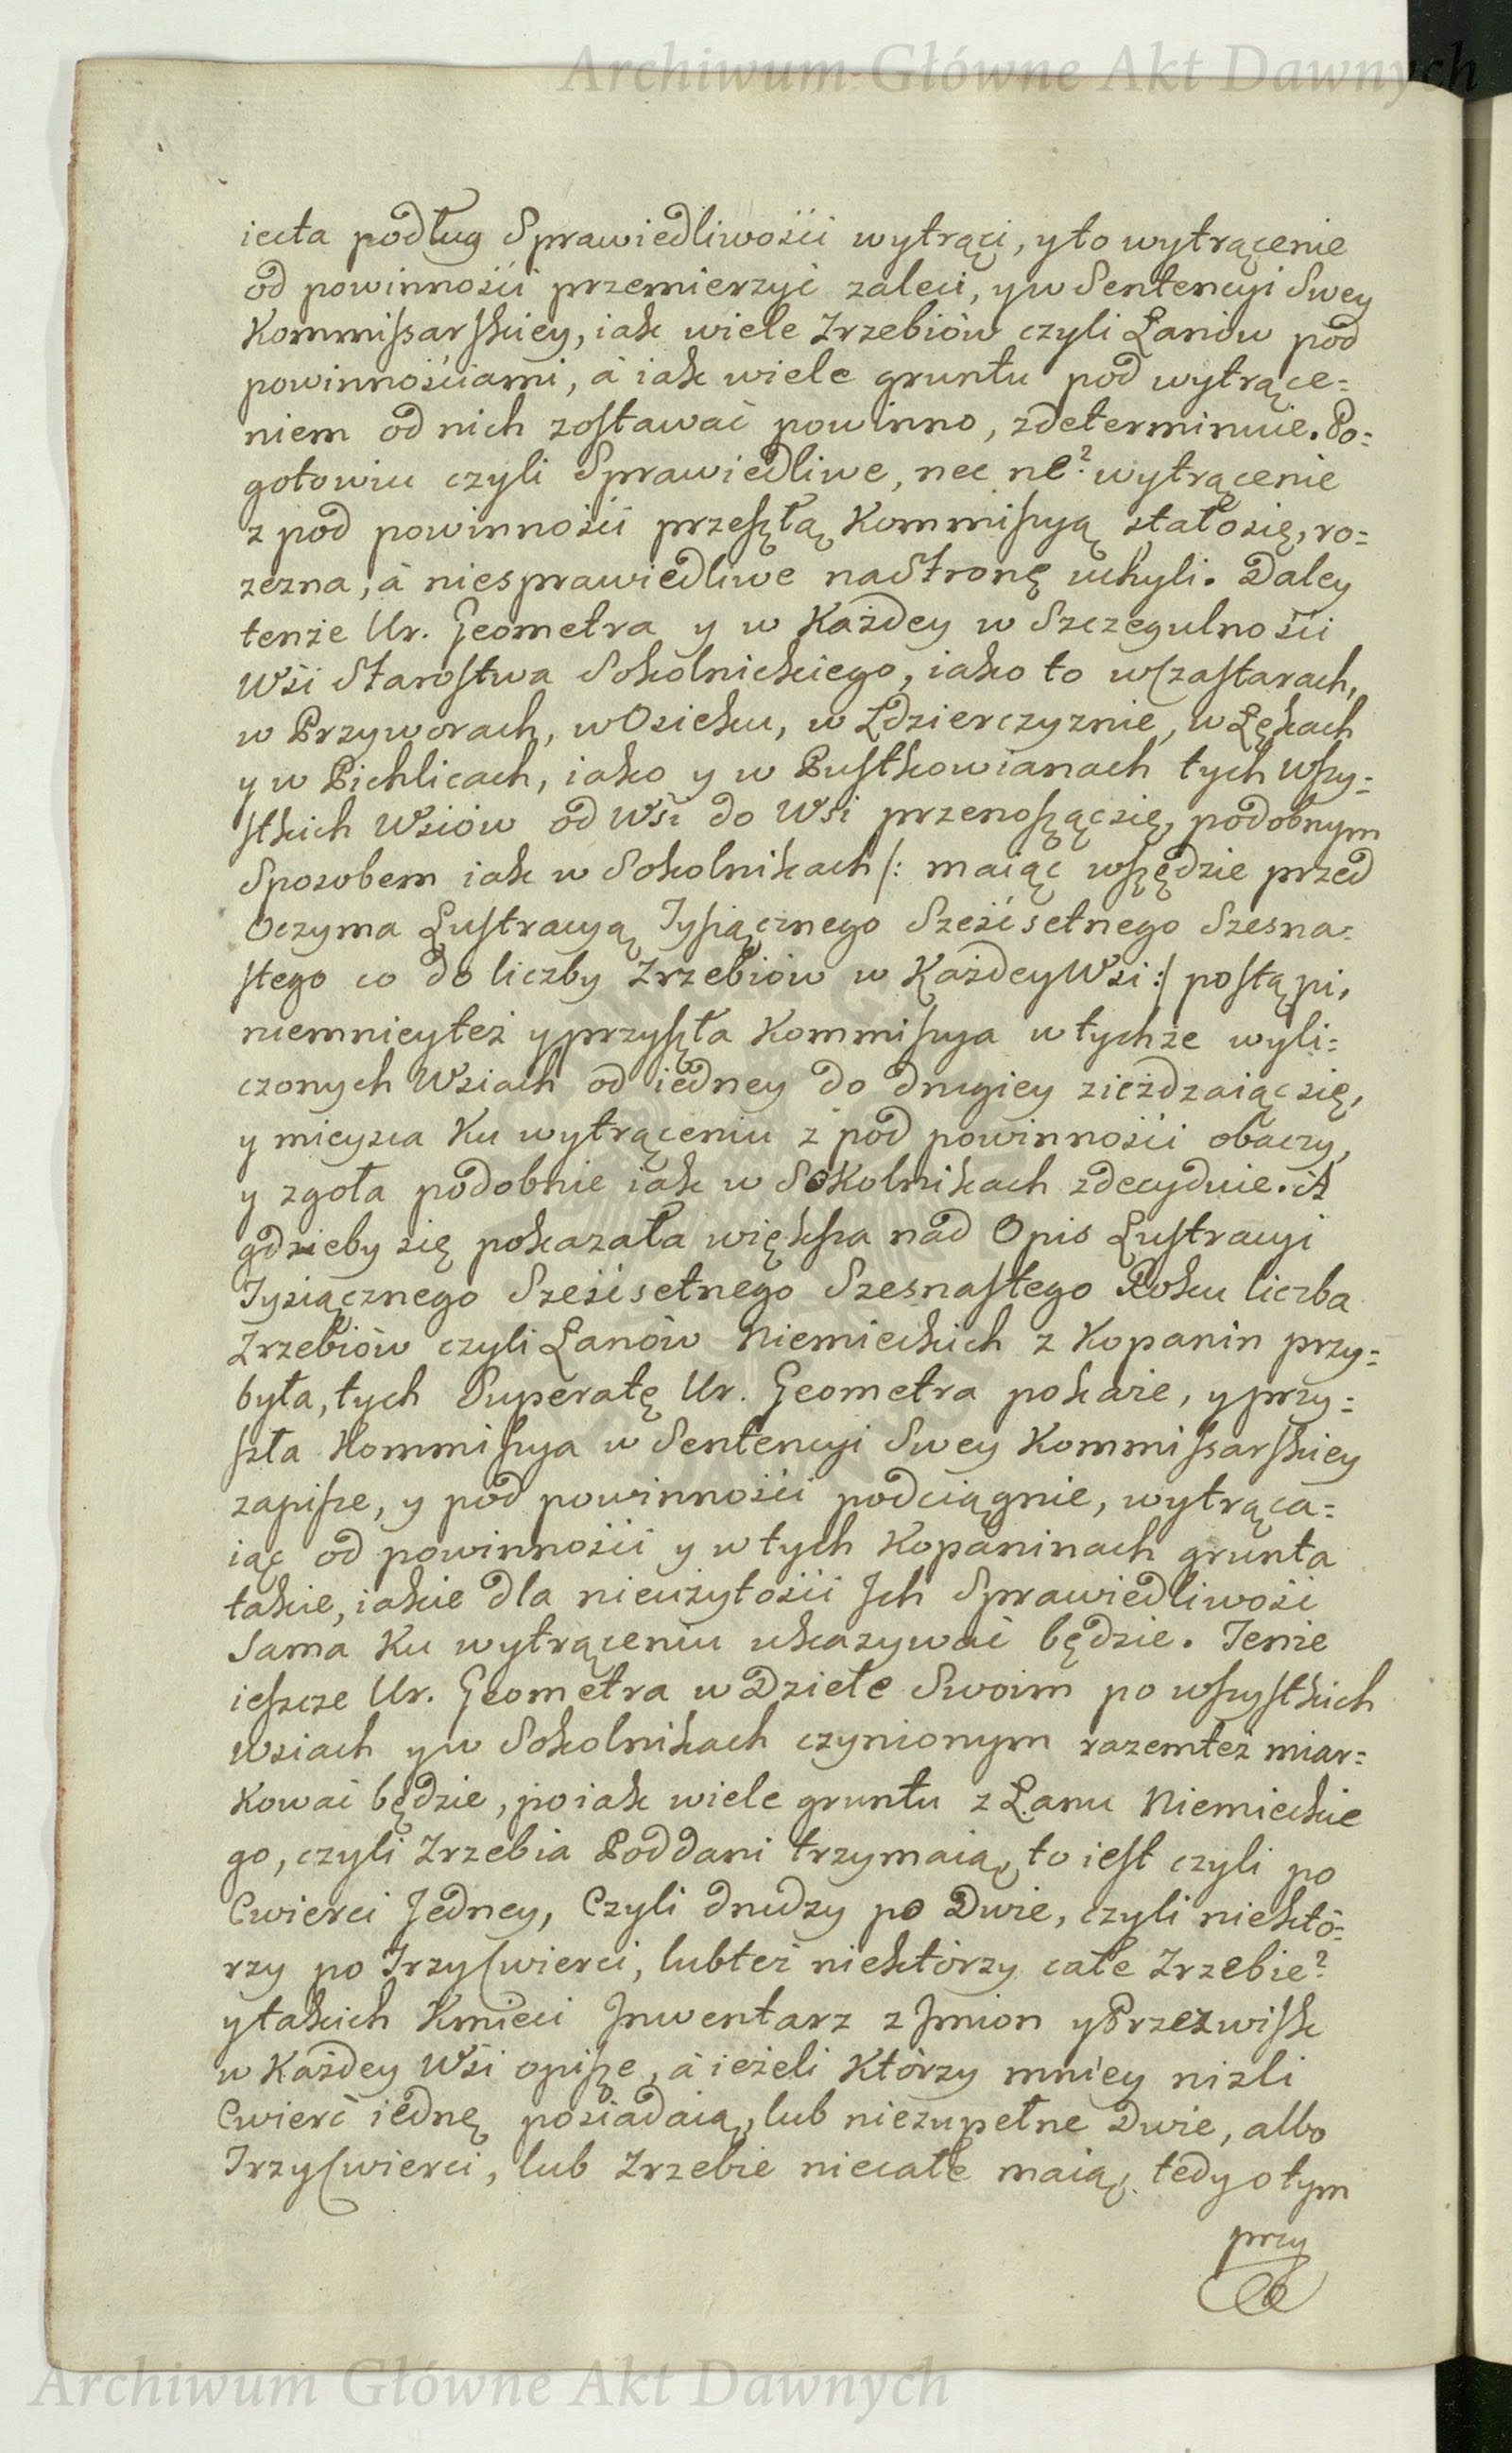 Archiwum Główne Akt Dawnych
iecta podług Sprawiedliwości wytrąci, y to wytrącenie
od powinności przemierzyć zaleci, y w Sentencyi Swey
Kommissarskiey, iak wiele Zrzebiów czyli Łanów pod
powinnościami, à iak wiele gruntu pod wytrące=
niem od nich zostawać powinno, zdeterminuie. Po=
gotowiu czyli Sprawiedliwe, nec ne? wytrącenie
z pod powinności przeszłą Kommissyą stało się, ro=
zezna, à niesprawiedliwe na Stronę uchyli. Daley
tenże Ur. Geometra y w Każdey w Szczegulności
Wśi Starostwa Sokolnickiego, iako to w Czastarach,
w Przyworach, w Osieku, w Ldzierczyznie, w Łękach
y w Pichlicach, iako y w Pustkowianach tych wszy=
stkich Wsiów od Wśi do Wsi przenosząc się, podobnym
Sposobem iak w Sokolnikach /: maiąc wszędzie przed
Oczyma Lustracyą Tysiącznego Sześćsetnego Szesna=
stego co do liczby Zrzebiów w Każdey Wsi :/ postąpi,
niemniey też y przyszła Kommissya w tychże wyli=
czonych Wsiach od iedney do drugiey zieżdzaiąc się,
y mieysca Ku wytrąceniu z pod powinności obaczy,
y zgoła podobnie iak w Sokolnikach zdecyduie. A
gdzieby się pokazała większa nad Opis Lustracyi
Tysiącznego Sześćsetnego Szesnastego Roku liczba
Zrzebiów czyli Łanów Niemieckich z Kopanin przy=
była, tych Superatę Ur. Geometra pokaże, y przy=
szła Kommissya w Sentencyi Swey Kommissarskiey
zapisze, y pod powinności podciągnie, wytrąca=
iąc od powinności y w tych Kopaninach grunta
takie, iakie dla nieużytości Ich Sprawiedliwość
Sama Ku wytrąceniu ukazywać będzie. Tenże
ieszcze Ur. Geometra w Dziele Swoim po wszystkich
Wsiach y w Sokolnikach czynionym razem też miar=
kować będzie, po iak wiele gruntu z Łanu Niemieckie
go, czyli Zrzebia Poddani trzymaią, to iest czyli po
Cwierci Jedney, Czyli drudzy po Dwie, czyli niektó=
rzy po Trzy Cwierci, lub też niektórzy całe Zrzebie?
y takich Kmieci Inwentarz z Imion y Przezwisk
w Każdey Wśi opisze, à ieżeli Którzy mniey niżli
Cwierć iednę posiadaią, lub niezupełne Dwie, albo
Trzy Cwierci, lub Zrzebie niecałe maią, tedy o tym
przy
Archiwum Główne Akt Dawnych